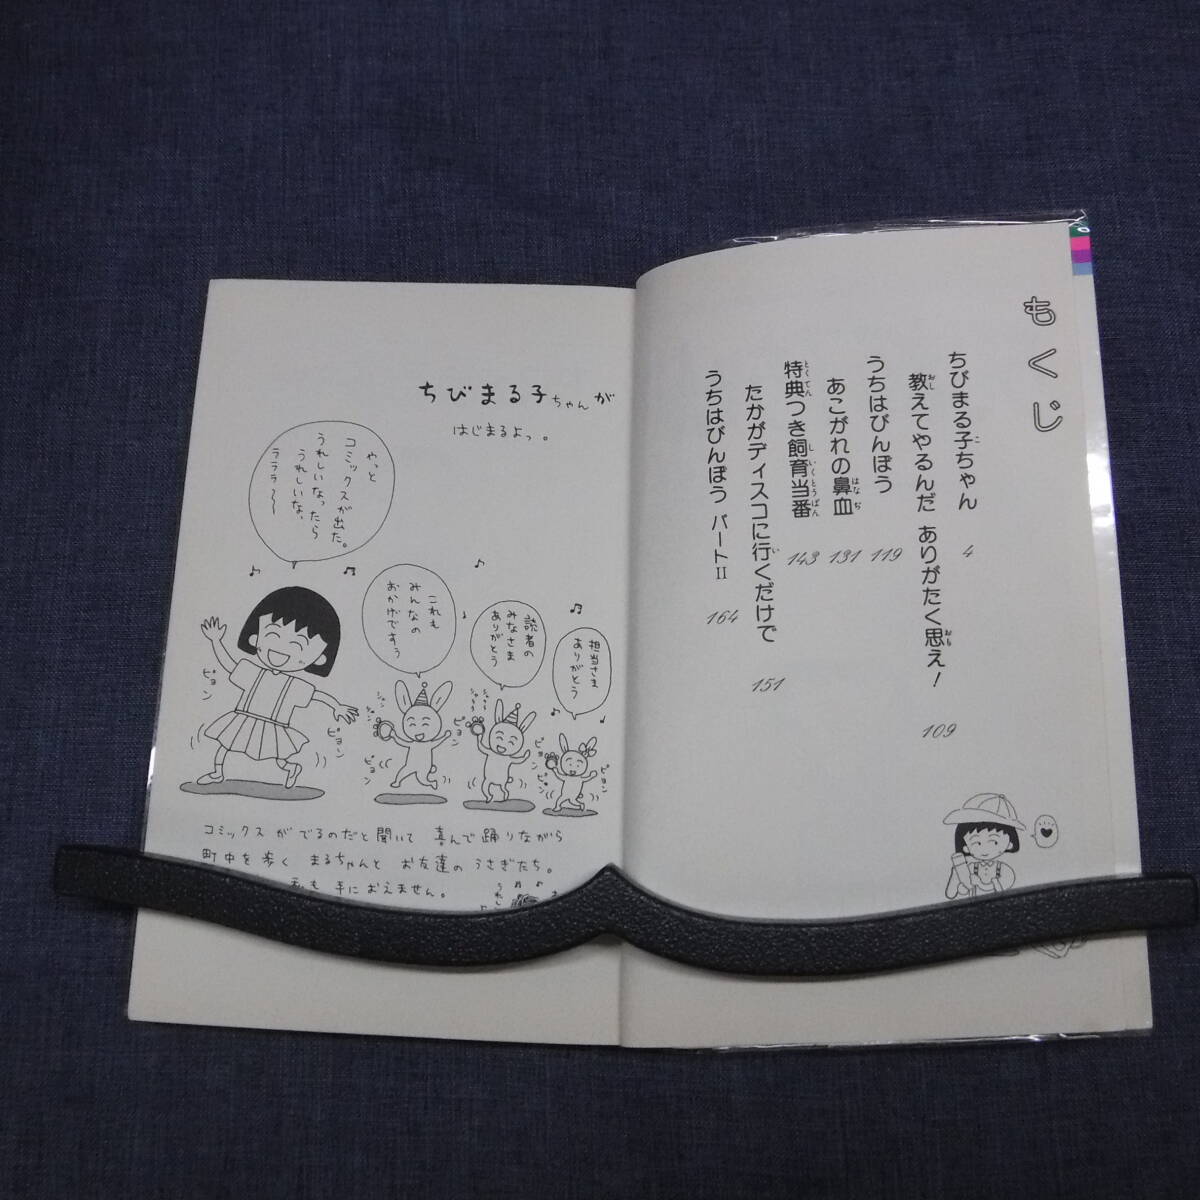 もくじ
ちびまる子ちゃん
4
教えてやるんだ ありがたく思え!
109
うちはびんぼう
119
あこがれの鼻血
131
特典つき飼育当番
143
たかがディスコに行くだけで
151
うちはびんぼう パートII
164
ちびまる子ちゃんが
はじまるよっ。
やっと
コミックスが出た。
うれしいなったら
うれしいな、
ラララ〜〜
これも
みんなの
おかげですぅ
読者の
みなさま
ありがとう
担当さま
ありがとう
ピョン
ピョン
ピョン
ピョン
ピョン
ピョン
ピョン
コミックスがでるのだと聞いて 喜んで踊りながら
町中を歩く まるちゃんと お友達のうさぎたち。
私も 手におえません。